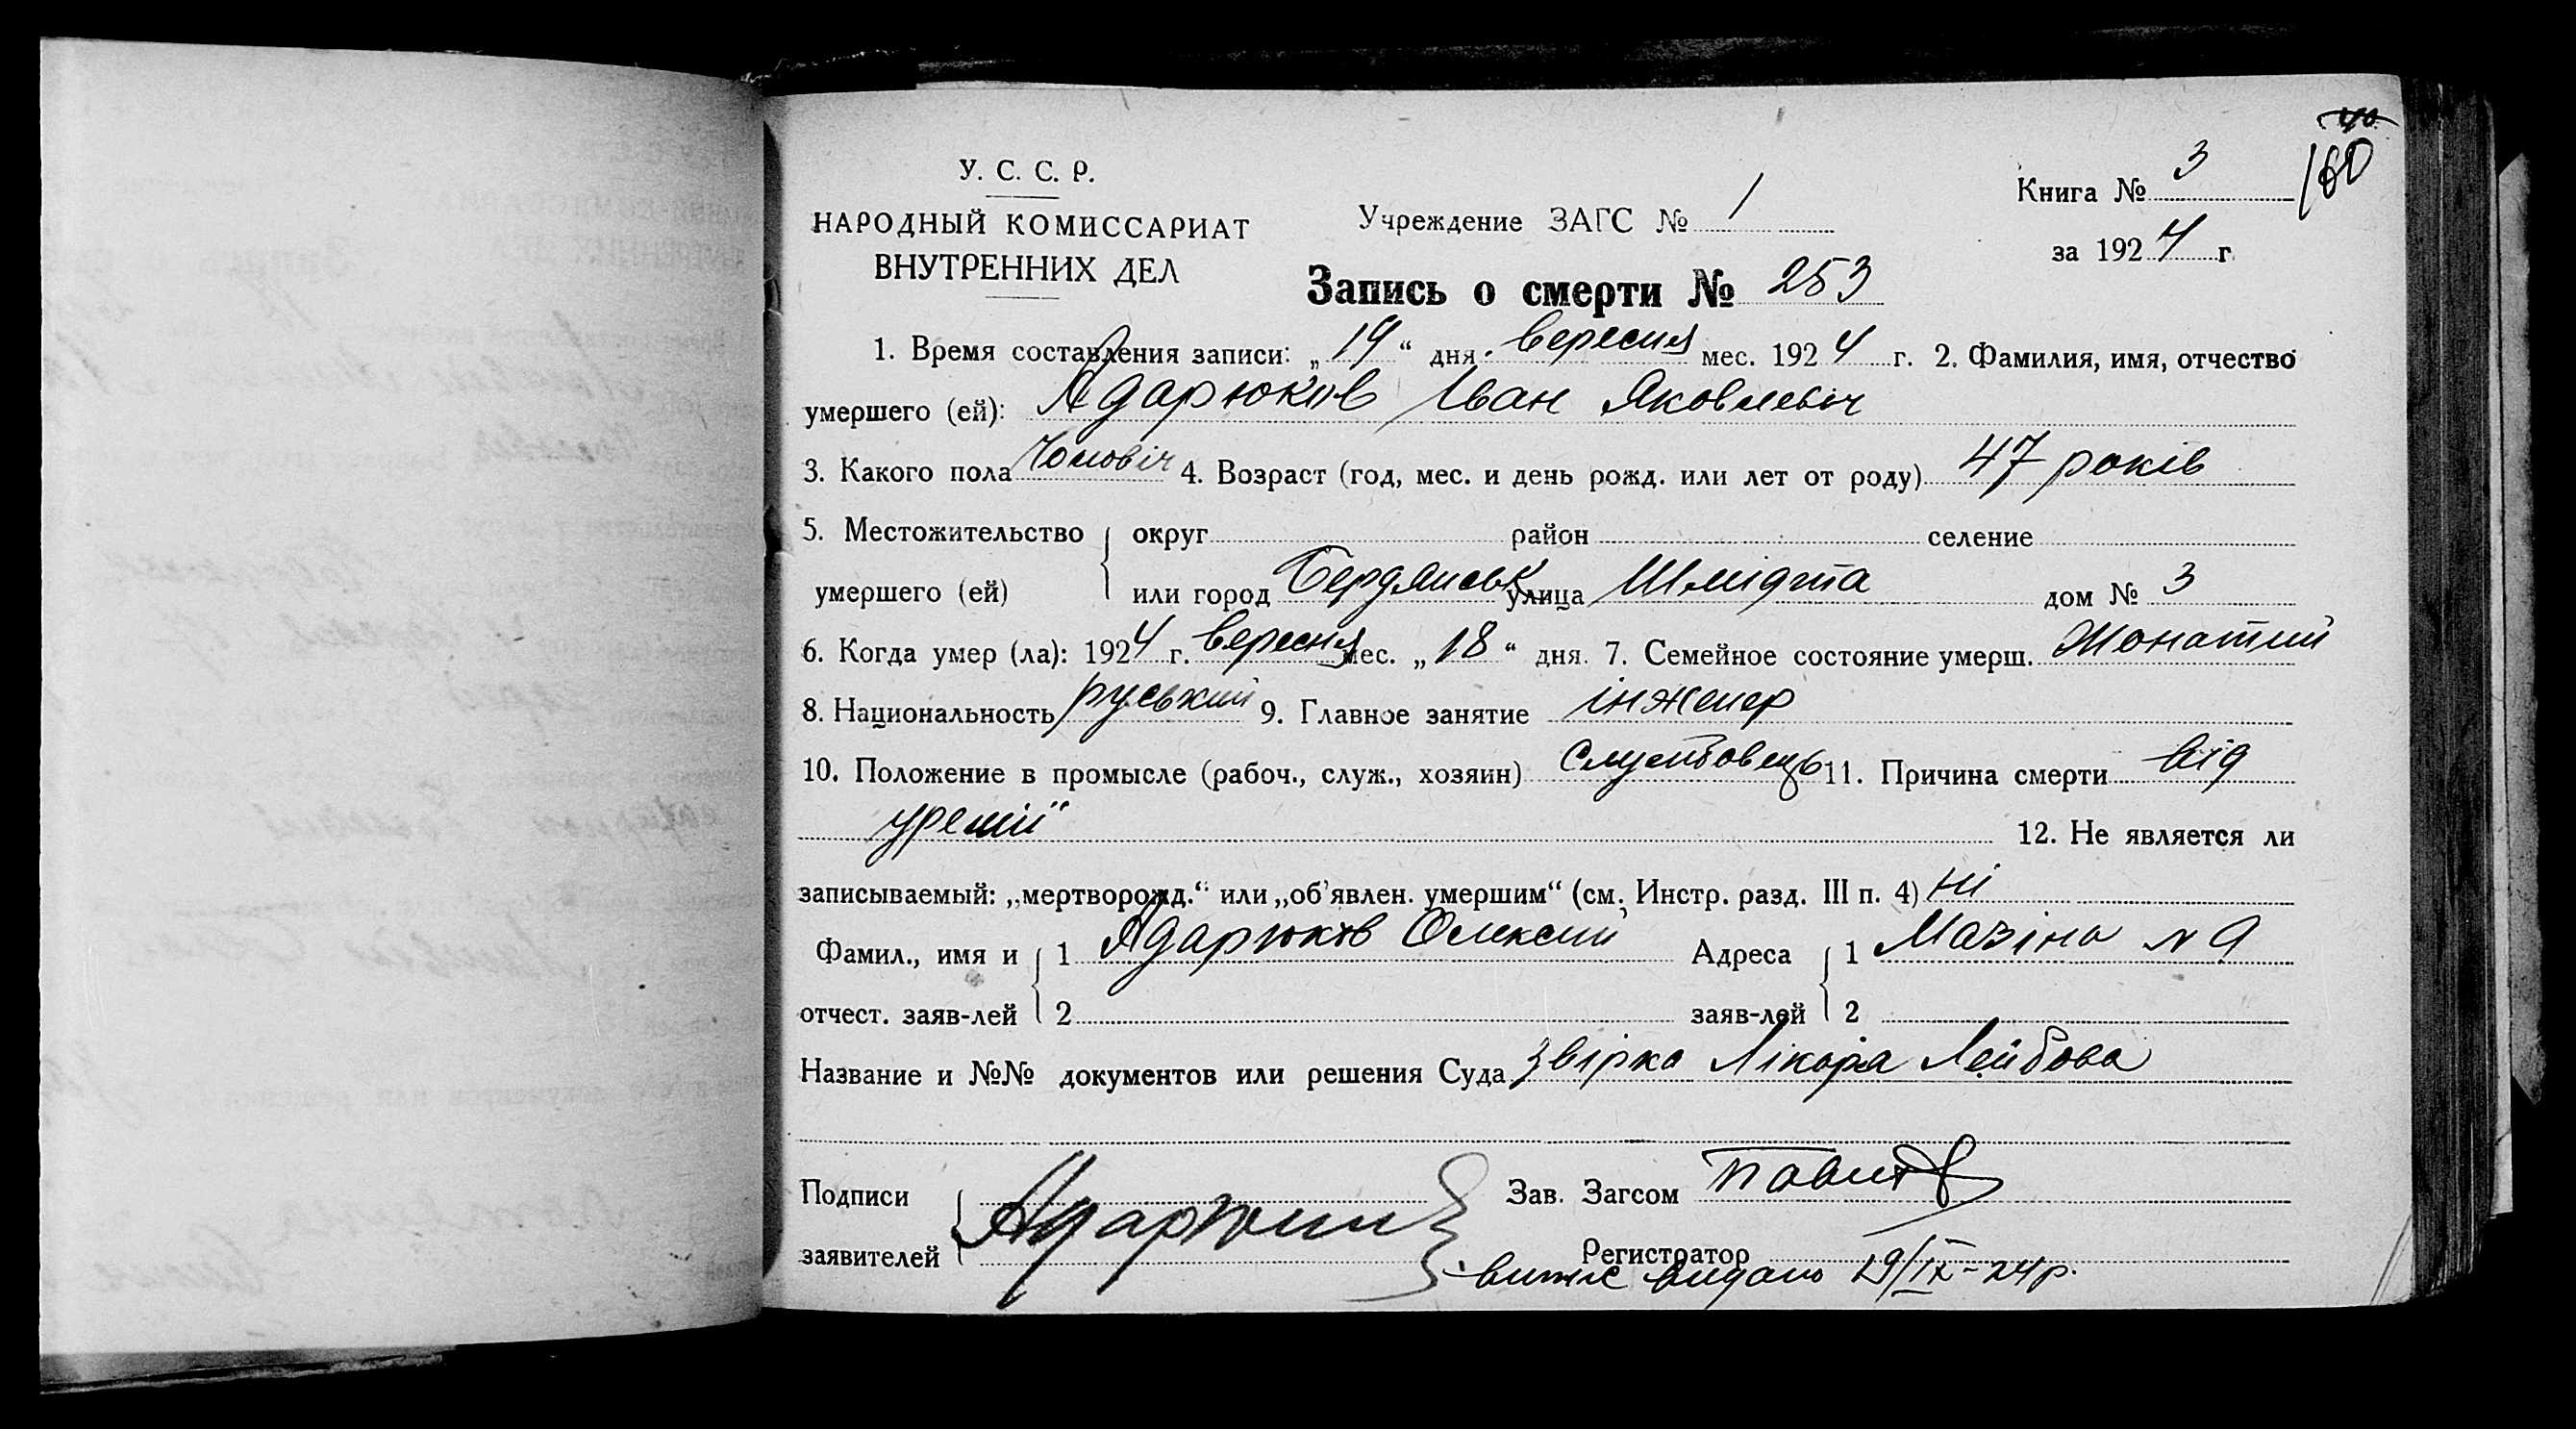 40
У. С. С. Р.
НАРОДНЫЙ КОМИССАРИАТ
ВНУТРЕННИХ ДЕЛ
Учреждение ЗАГС № 1
Книга № 3
160
за 1924 г.
Запись о смерти № 253
1. Время составления записи: „19“ дня вересня мес. 1924 г. 2. Фамилия, имя, отчество
умершего (ей): Адарюков Іван Яковлевіч
3. Какого пола Чоловіч 4. Возраст (год, мес. и день рожд. или лет от роду) 47 років
5. Местожительство округ район селение
умершего (ей) или город Бердянськ улица Шмідта дом № 3
6. Когда умер (ла): 1924 г. вересня мес. „18“ дня. 7. Семейное состояние умерш. Жонатий
8. Национальность руський 9. Главное занятие інженер
10. Положение в промысле (рабоч., служ., хозяин) Службовець 11. Причина смерти від
уремії 12. Не является ли
записываемый: „мертворожд.“ или „об’явлен. умершим“ (см. Инстр. разд. III п. 4) Ні
Фамил., имя и 1 Адарюков Олексій Адреса 1 Мазіна № 9
отчест. заяв-лей 2 заяв-лей 2
Название и №№ документов или решения Суда Звірка Лікаря Лейбова
Подписи Зав. Загсом
заявителей Регистратор
витяг видано 19/IX-24р.